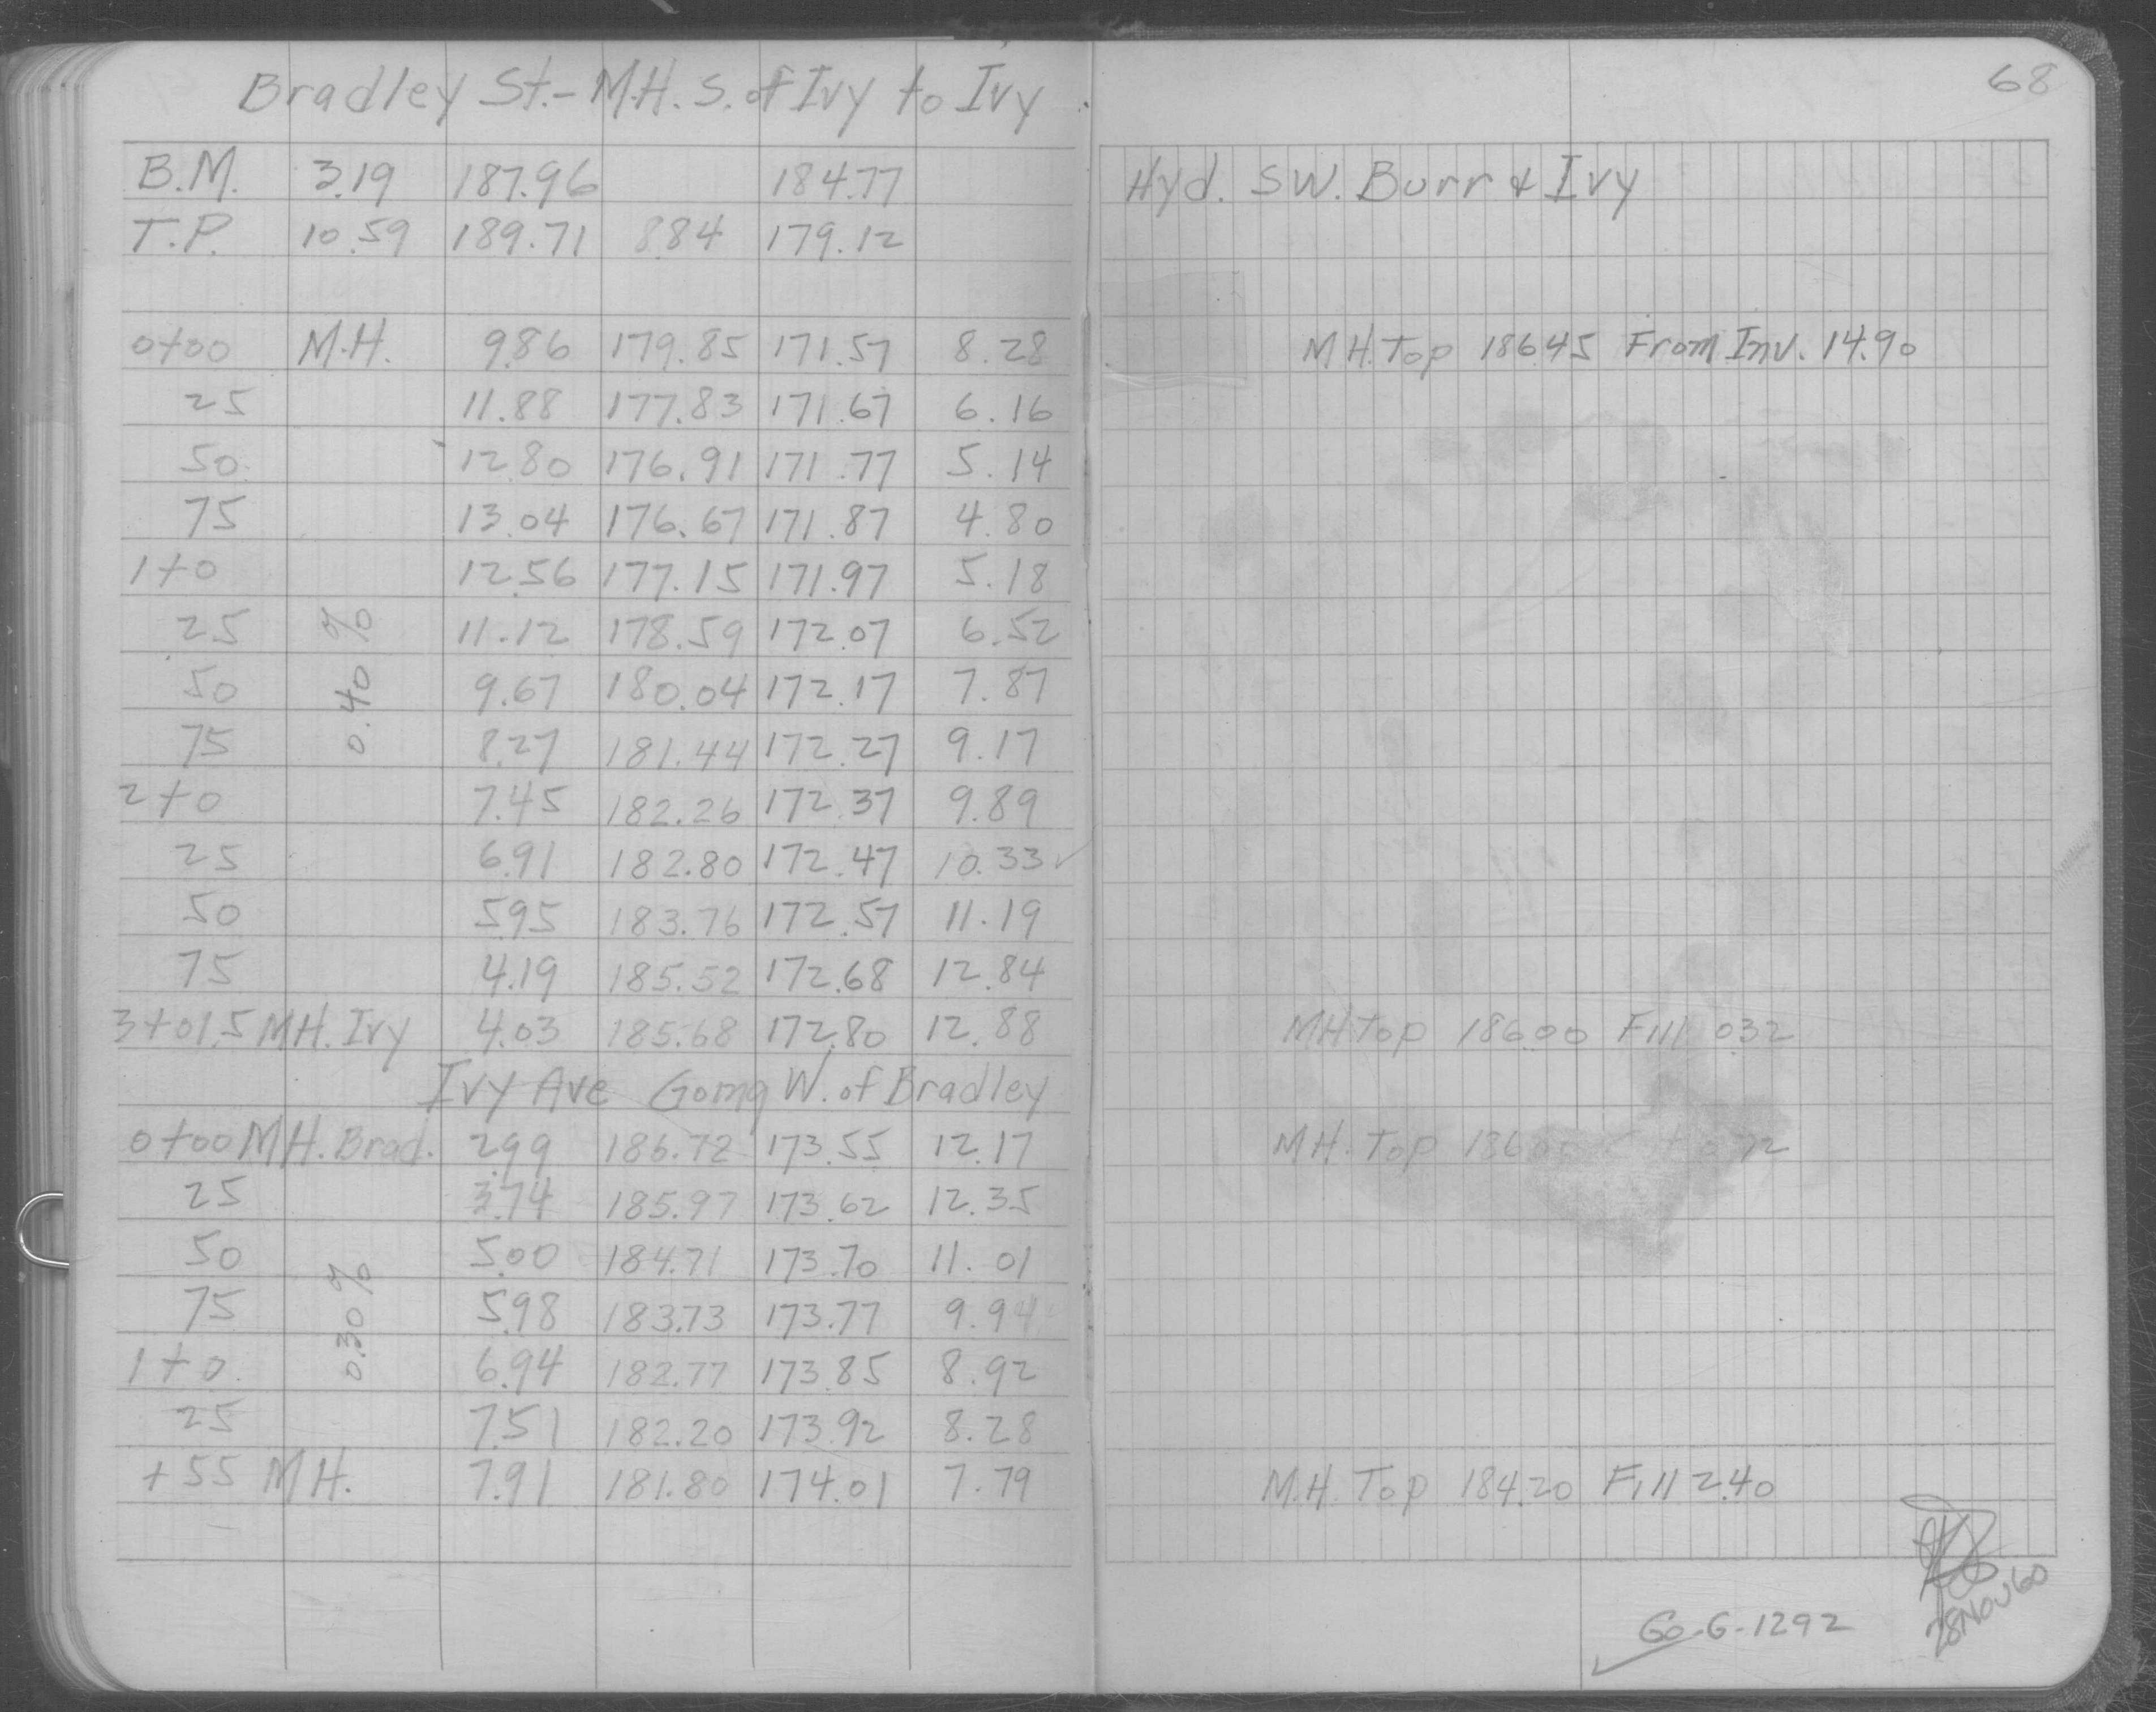 68
Bradley St.- M.H. S. of Ivy to Ivy
B.M. 3.19 187.96 184.77 Hyd. SW. Burr & Ivy
T.P. 10.59 189.71 8.84 179.12
0+00 M.H. 9.86 179.85 171.57 8.28 M.H. Top 186.45 From Inv. 14.90
25 11.88 177.83 171.67 6.16
50 12.80 176.91 171.77 5.14
75 13.04 176.67 171.87 4.80
1+0 12.56 177.15 171.97 5.18
25 11.12 178.59 172.07 6.52
50 9.67 180.04 172.17 7.87
0.40 %
75 8.27 181.44 172.27 9.17
2+0 7.45 182.26 172.37 9.89
25 6.91 182.80 172.47 10.33 ✓
50 5.95 183.76 172.57 11.19
75 4.19 185.52 172.68 12.84
3+01.5 M.H. Ivy 4.03 185.68 172.80 12.88 M.H. Top 186.00 Fill 0.32
Ivy Ave Going W. of Bradley
0+00 M.H. Brad. 2.99 186.72 173.55 12.17 M.H. Top
25 3.74 185.97 173.62 12.35
50 5.00 184.71 173.70 11.01
75 5.98 183.73 173.77 9.94
0.30 %
1+0 6.94 182.77 173.85 8.92
25 7.51 182.20 173.92 8.28
+55 M.H. 7.91 181.80 174.01 7.79 M.H. Top 184.20 Fill 2.40
28 NOV 60
Go-G-1292